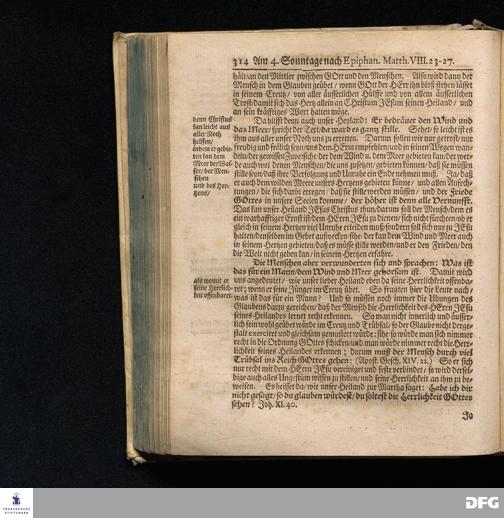 314 Am 4. Sonntage nach Epiphan. Matth. VIII. 23-27.
hält/an den Mittler zwischen GOtt und den Menschen. Also wird dann der
Mensch in dem Glauben geübet / wenn GOtt der HErr ihn bloß stehen lässet
in seinem Creutz/ von aller äusserlichen Hülffe und von allem äusserlichen
Trost/damit sich das Hertz allein an Christum JEsum seinen Heiland/ und
an sein kräfftiges Wort halten möge.
denn Christus
kan leicht aus
aller Noth
helffen/
indem er gebie-
ten kan dem
Meer der Was-
ser/ der Men-
schen
und des Her-
tzens/
Da hilfft denn auch unser Heyland: Er bedräuet den Wind und
das Meer/ spricht der Text/ da ward es gantz stille. Sehet/ so leicht ist es
ihm aus aller unser Noth uns zu erretten. Darum sollen wir nur getrost/ nur
freudig und frölich seyn/uns dem HErrn empfehlen/und in seinen Wegen wan-
deln/der gewissen Zuversicht/ der dem Wind u. dem Meer gebieten kan/der wer-
de auch wol denen Menschen/die uns zusetzen/ gebieten können/daß sie müssen
stille seyn/daß ihre Verfolgung und Unruhe ein Ende nehmen muß. Ja/ daß
er auch dem wilden Meere unsers Hertzens gebieten könne/ und allen Anfech-
tungen/ die sich darin erregen/ daß sie stille werden müssen/ und der Friede
GOttes in unsere Seelen komme/ der höher ist denn alle Vernunfft.
Das kan unser Heiland JEsus Christus thun/darum soll der Mensch/dem es
ein warhafftiger Ernst ist/dem HErrn JEsu zu dienen/sich nicht fürchten/ob er
gleich in seinem Hertzen viel Unruhe erleiden muß/sondern soll sich nur zu JEsu
halten/denselben im Gebet aufwecken/ der kan dem Wind und Meer auch
in seinem Hertzen gebieten/daß es müsse stille werden/und er den Frieden/den
die Welt nicht geben kan/in seinem Hertzen erfahre.
als womit er
seine Herrlich-
keit offenbaret.
Die Menschen aber verwunderten sich und sprachen: Was ist
das für ein Mann/ dem Wind und Meer gehorsam ist. Damit wird
uns angedeutet/ wie unser lieber Heiland eben da seine Herrlichkeit offenba-
ret; wenn er seine Jünger im Creutz übet. So fragten hier die Leute nach/
was ist das für ein Mann? Und so müssen noch immer die Ubungen des
Glaubens dazu gereichen/ daß der Mensch die Herrlichkeit des HErrn JEsu
seines Heilandes lernet recht erkennen. So man nicht innerlich und äusser-
lich fein wohl geübet würde im Creutz und Trübsal/ so der Glaube nicht derge-
stalt exerciret und gleichsam gemustert würde: siehe so würde man sich nimmer
recht in die Ordnung GOttes schicken/und man würde nimmer recht die Herr-
lichkeit seines Heilandes erkennen; darum muß der Mensch durch viel
Trübsal ins Reich GOttes gehen: (Apost. Gesch. XIV. 22.) So er sich
nur recht mit dem HErrn JEsu vereiniget und feste verbindet/ so wird dersel-
bige auch alles Ungestüm wissen zu stillen/ und seine Herrlichkeit an ihm zu be-
weisen. Es heisset da/ wie unser Heiland zur Martha saget: Habe ich dir
nicht gesagt/ so du glauben würdest/ du soltest die Herrlichkeit GOttes
sehen? Joh. XI. 40.
So
FRANCKESCHE
STIFTUNGEN
DFG